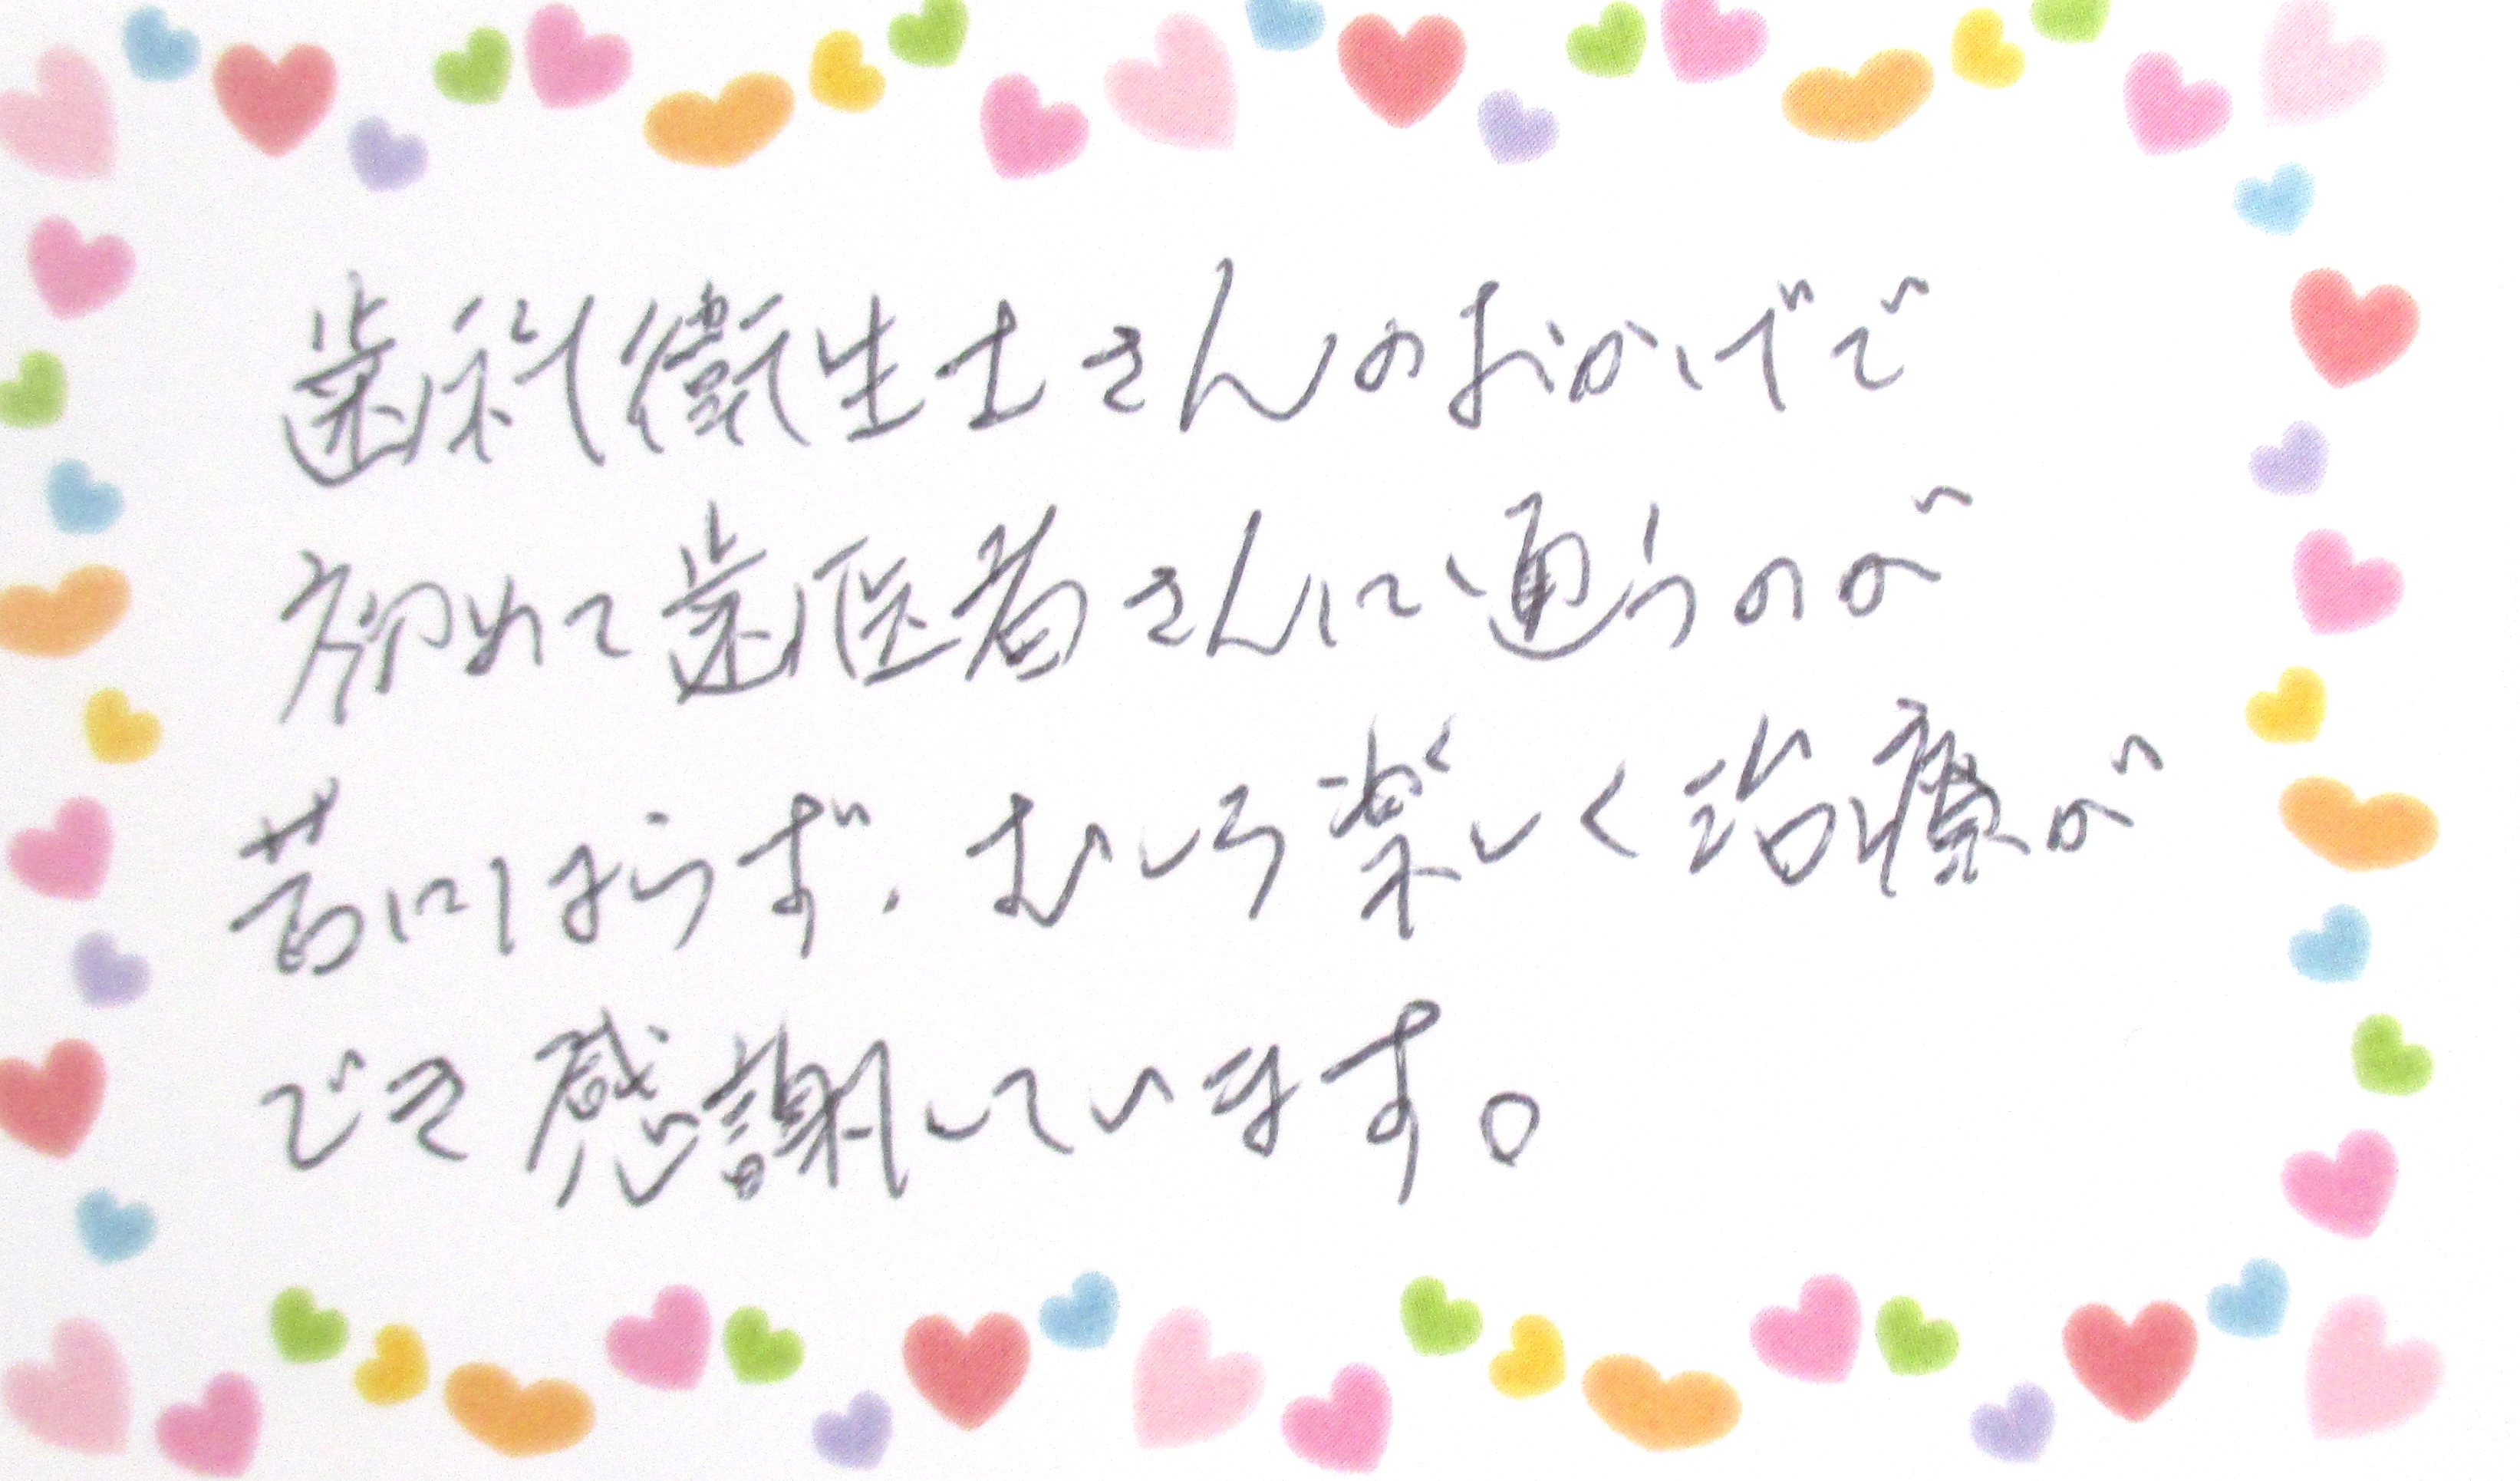 歯科衛生士さんのおかげで
初めて歯医者さんに通うのが
苦にはらず、むしろ楽しく治療が
でき感謝しています。